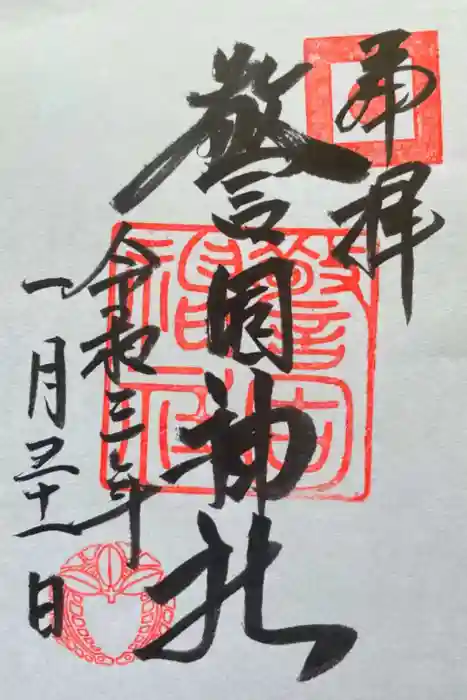 奉拝
警固神社
令和三年
一月二十一日